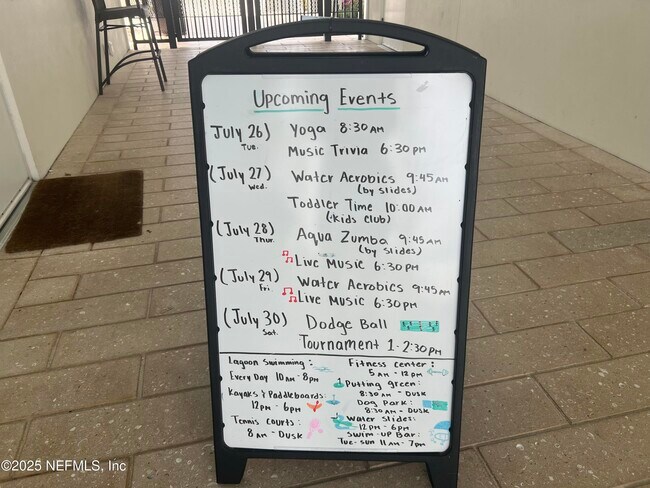 Upcoming Events
July 26) Yoga 8:30 AM
Tue.
Music Trivia 6:30 pm
(July 27) Water Aerobics 9:45 AM
Wed. (by slides)
Toddler Time 10:00 AM
(Kids Club)
(July 28) Aqua Zumba 9:45 AM
Thur. (by slides)
Live Music 6:30 pm
(July 29) Water Aerobics 9:45 AM
Fri Live Music 6:30 pm
(July 30) Dodge Ball
Sat. Tournament 1-2:30 pm
Lagoon Swimming:
Every Day 10 AM - 8 pm
Kayaks & Paddleboards:
12 pm - 6 pm
Tennis Courts:
8 AM - Dusk
Fitness center:
5 AM - 12 pm
Putting green:
8:30 AM - Dusk
Dog Park:
8:30 AM - Dusk
Water Slides:
12 pm - 6 pm
Swim-up Bar:
Tue-Sun 11 AM - 7 pm
©2025 NEFMLS, Inc